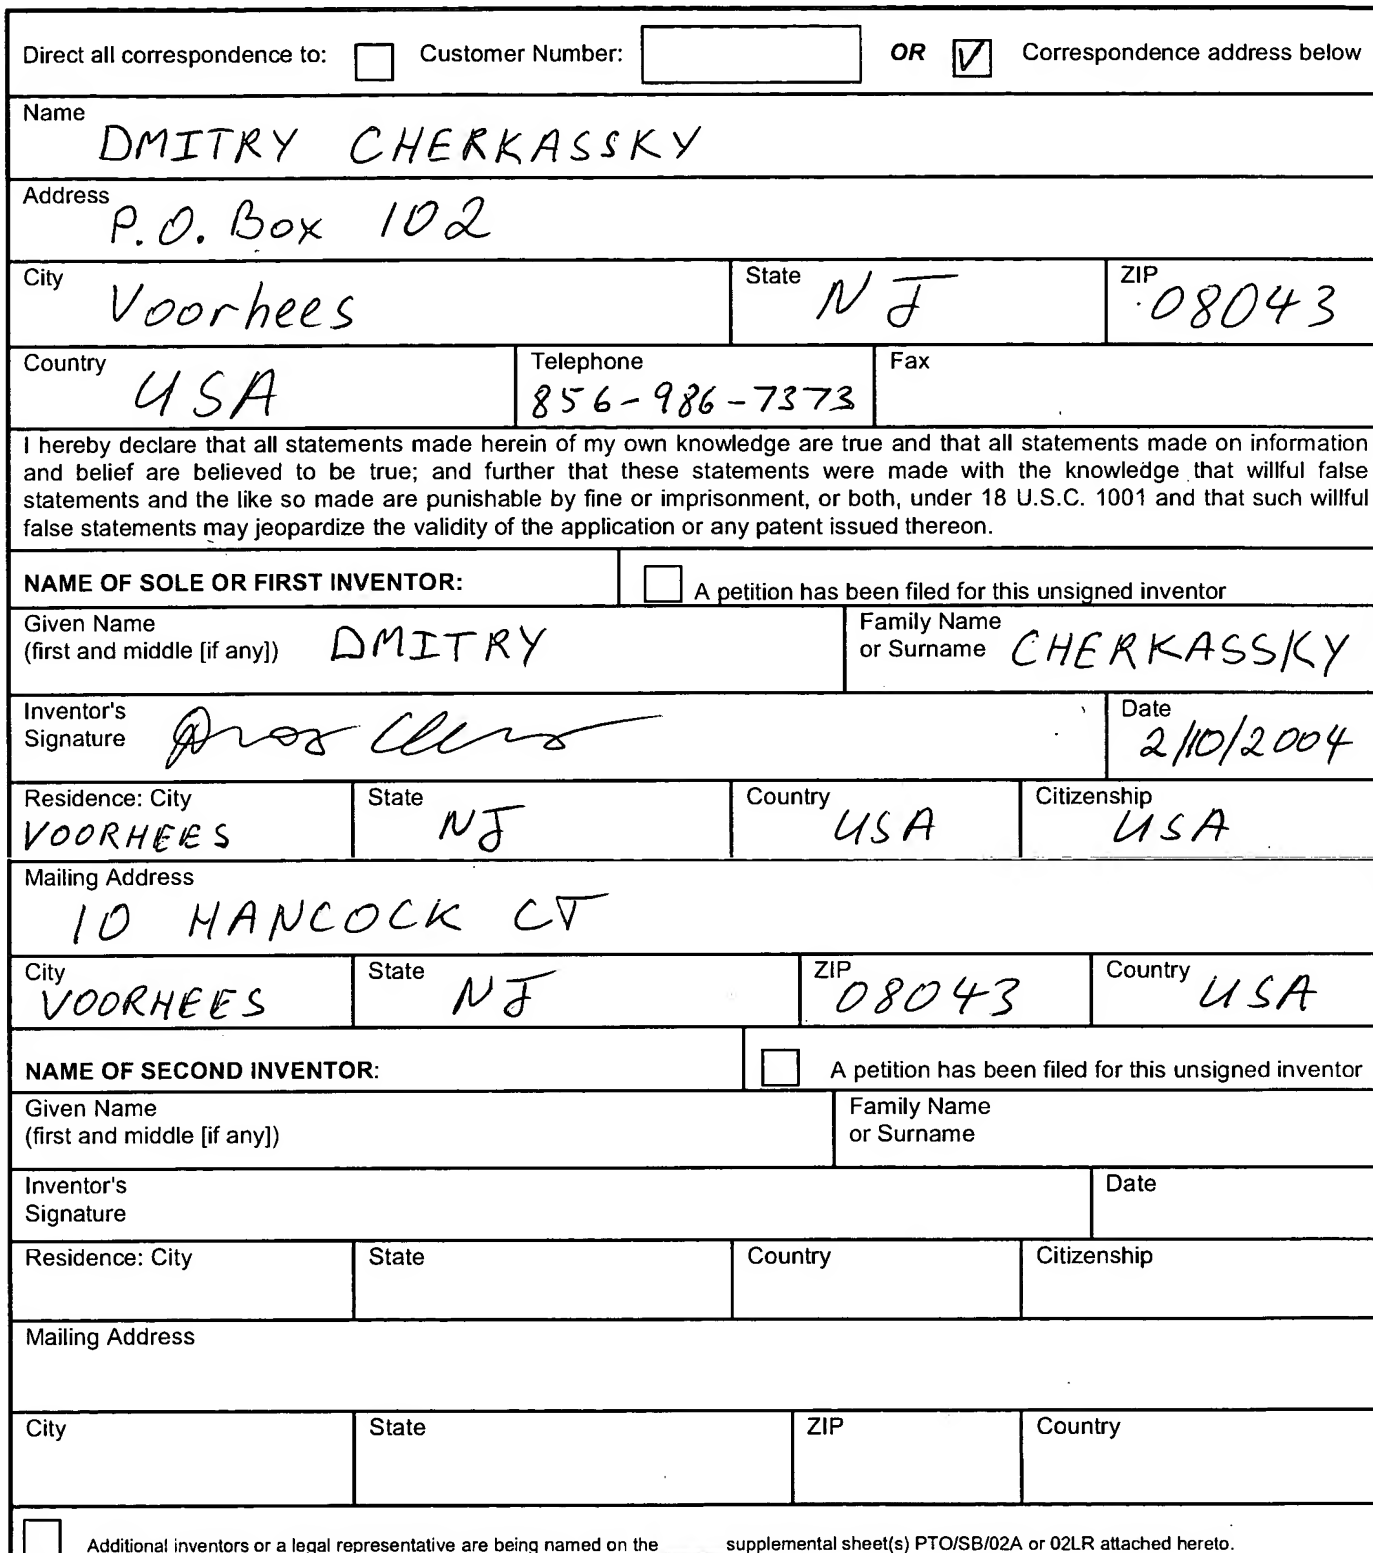 Direct all correspondence to: Customer Number: OR Correspondence address below
Name
DMITRY CHERKASSKY
Address
P.O. Box 102
City State ZIP
Voorhees NJ 08043
Country Telephone Fax
USA 856-986-7373
I hereby declare that all statements made herein of my own knowledge are true and that all statements made on information
and belief are believed to be true; and further that these statements were made with the knowledge that willful false
statements and the like so made are punishable by fine or imprisonment, or both, under 18 U.S.C. 1001 and that such willful
false statements may jeopardize the validity of the application or any patent issued thereon.
NAME OF SOLE OR FIRST INVENTOR: A petition has been filed for this unsigned inventor
Given Name Family Name
(first and middle [if any]) DMITRY or Surname CHERKASSKY
Inventor's Date
Signature 2/10/2004
Residence: City State Country Citizenship
VOORHEES NJ USA USA
Mailing Address
10 HANCOCK CT
City State ZIP Country
VOORHEES NJ 08043 USA
NAME OF SECOND INVENTOR: A petition has been filed for this unsigned inventor
Given Name Family Name
(first and middle [if any]) or Surname
Inventor's Date
Signature
Residence: City State Country Citizenship
Mailing Address
City State ZIP Country
Additional inventors or a legal representative are being named on the supplemental sheet(s) PTO/SB/02A or 02LR attached hereto.